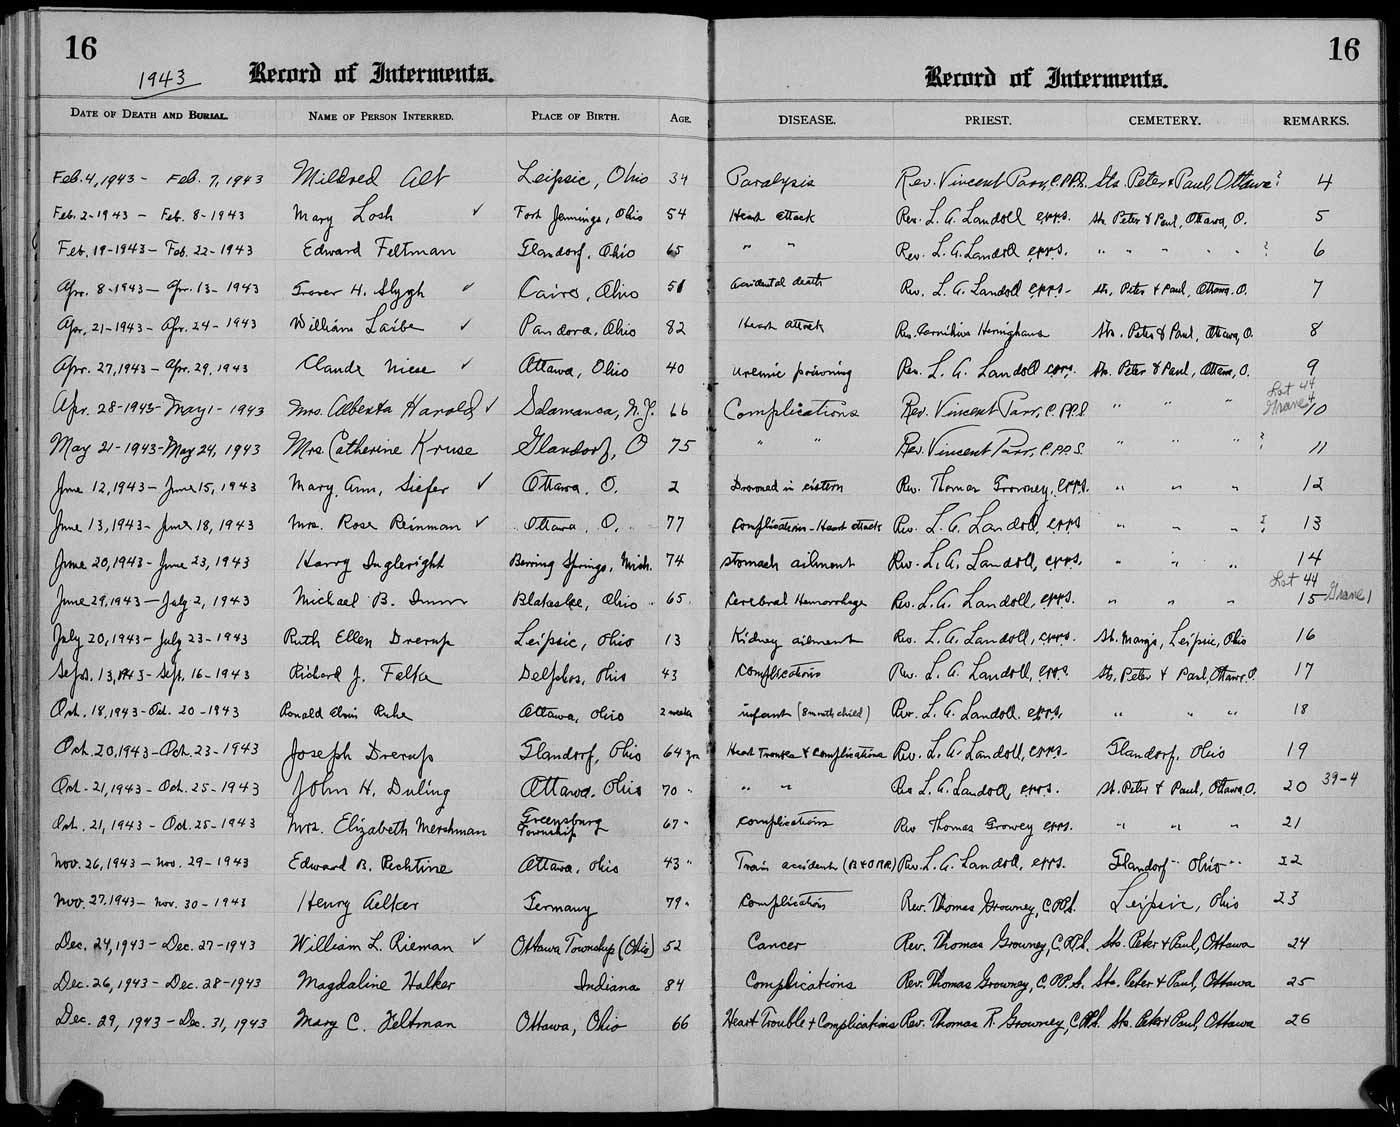 16 16
1943 Record of Interments. Record of Interments.
DATE OF DEATH AND BURIAL. NAME OF PERSON INTERRED. PLACE OF BIRTH. AGE. DISEASE. PRIEST. CEMETERY. REMARKS.
Feb. 4, 1943 - Feb. 7, 1943 Mildred Alt Leipsic, Ohio 34 Paralysis Rev. Vincent Parr, C.PP.S. Sts. Peter & Paul, Ottawa ? 4
Feb. 2 - 1943 - Feb. 8 - 1943 Mary Losh ✓ Fort Jennings, Ohio 54 Heart attack Rev. L. A. Landoll c.pp.s. Sts. Peter & Paul, Ottawa, O. 5
Feb. 19 - 1943 - Feb. 22 - 1943 Edward Feltman Glandorf, Ohio 65 " " Rev. L. A. Landoll c.pp.s. " " " " " ? 6
Apr. 8 - 1943 - Apr. 13 - 1943 H. Slygh ✓ Cairo, Ohio 51 Accidental death Rev. L. A. Landoll c.pp.s. Sts. Peter & Paul, Ottawa. O. 7
Apr. 21 - 1943 - Apr. 24 - 1943 William Laibe ✓ Pandora, Ohio 82 Heart attack Rev. Sts. Peter & Paul, Ottawa, O. 8
Apr. 27, 1943 - Apr. 29, 1943 Claude Niese ✓ Ottawa, Ohio 40 uremic poisoning Rev. L. A. Landoll c.pp.s. Sts. Peter & Paul, Ottawa, O. 9
Lot 44
Apr. 28 - 1943 - May 1 - 1943 Mrs. Alberta Harold ✓ Salamanca, N.Y. 66 Complications Rev. Vincent Parr, C.PP.S. " " " Grave 4 10
May 21 - 1943 - May 24, 1943 Mrs Catherine Kruse Glandorf, O 75 " " Rev. Vincent Parr, C.PP.S. " " " ? 11
June 12, 1943 - June 15, 1943 Mary Ann, Siefer ✓ Ottawa, O. 2 Drowned in cistern Rev. Thomas Growney, c.pp.s. " " " 12
June 13, 1943 - June 18, 1943 Mrs. Rose Reinman ✓ Ottawa, O. 77 Complications - Heart attack Rev. L. A. Landoll, c.pp.s " " " ? 13
June 20, 1943 - June 23, 1943 Harry Ingleright Berring Springs, Mich. 74 stomach ailment Rev. L. A. Landoll, c.pp.s. " " " 14
Lot 44
June 29, 1943 - July 2, 1943 Michael B. Ohio 65 Cerebral Hemorrhage Rev. L. A. Landoll, c.pp.s. " " " 15 Grave 1
July 20, 1943 - July 23 - 1943 Ruth Ellen Drerup Leipsic, Ohio 13 Kidney ailment Rev. L. A. Landoll, c.pp.s. St. Mary's, Leipsic, Ohio 16
Sept. 13, 1943 - Sept. 16 - 1943 Richard J. Delphos, Ohio 43 Complications Rev. L. A. Landoll, c.pp.s. Sts. Peter & Paul, Ottawa. O. 17
Oct. 18, 1943 - Oct. 20 - 1943 Ronald Ottawa, Ohio 2 weeks infant (8 month child) Rev. L. A. Landoll. c.pp.s. " " " 18
Oct. 20, 1943 - Oct. 23 - 1943 Joseph Drerup Glandorf, Ohio 64 yrs Heart Trouble & Complications Rev. L. A. Landoll, c.pp.s. Glandorf, Ohio 19
Oct. 21, 1943 - Oct. 25 - 1943 John H. Duling Ottawa, Ohio 70 " " " Rev L. A. Landoll, c.pp.s. St. Peter & Paul, Ottawa, O. 20 39-4
Oct. 21, 1943 - Oct. 25 - 1943 Mrs. Elizabeth Mershman Greensburg Township 67 " complications Rev Thomas Growney c.pp.s. " " " 21
Nov. 26, 1943 - Nov. 29 - 1943 Edward B. Rechtine Ottawa, Ohio 43 " Train accident (B & O RR) Rev. L. A. Landoll, c.pp.s. Glandorf Ohio 22
Nov. 27, 1943 - Nov. 30 - 1943 Henry Aelker Germany 79 " Complications Rev. Thomas Growney, C.PP.S. Leipsic, Ohio 23
Dec. 24, 1943 - Dec. 27 - 1943 William L. Rieman ✓ Ottawa Township (Ohio) 52 Cancer Rev. Thomas Growney, C.PP.S. Sts. Peter & Paul, Ottawa 24
Dec. 26, 1943 - Dec. 28 - 1943 Magdaline Halker Indiana 84 Complications Rev. Thomas Growney, C.PP.S. Sts. Peter & Paul, Ottawa 25
Dec. 29, 1943 - Dec. 31, 1943 Mary C. Feltman Ottawa, Ohio 66 Heart Trouble & Complications Rev. Thomas R. Growney, C.PP.S. Sts. Peter & Paul, Ottawa 26